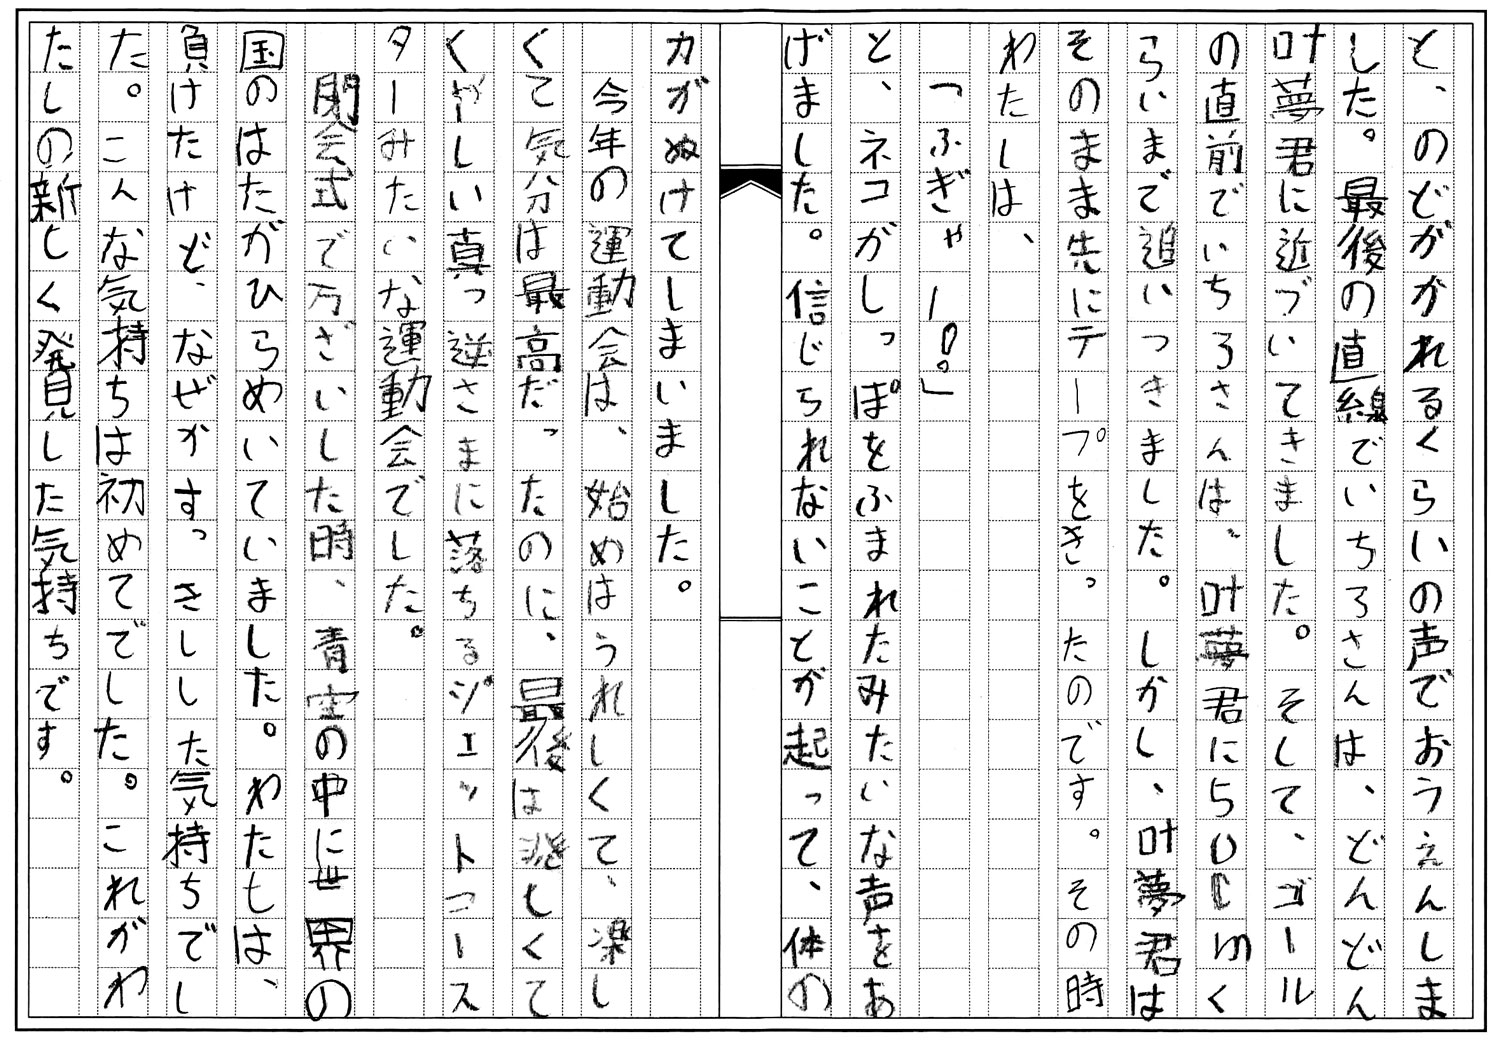 と、のどがかれるくらいの声でおうえんしま
した。最後の直線でいちろさんは、どんどん
叶夢君に近づいてきました。そして、ゴール
の直前でいちろさんは、叶夢君に50cmく
らいまで追いつきました。しかし、叶夢君は
そのまま先にテープをきったのです。その時
わたしは、
「ふぎゃー!。」
と、ネコがしっぽをふまれたみたいな声をあ
げました。信じられないことが起って、体の
力がぬけてしまいました。
今年の運動会は、始めはうれしくて、楽し
くて気分は最高だったのに、最後は悲しくて
くやしい真っ逆さまに落ちるジェットコース
ターみたいな運動会でした。
閉会式で万ざいした時、青空の中に世界の
国のはたがひらめいていました。わたしは、
負けたけど、なぜかすっきしした気持ちでし
た。こんな気持ちは初めてでした。これがわ
たしの新しく発見した気持ちです。